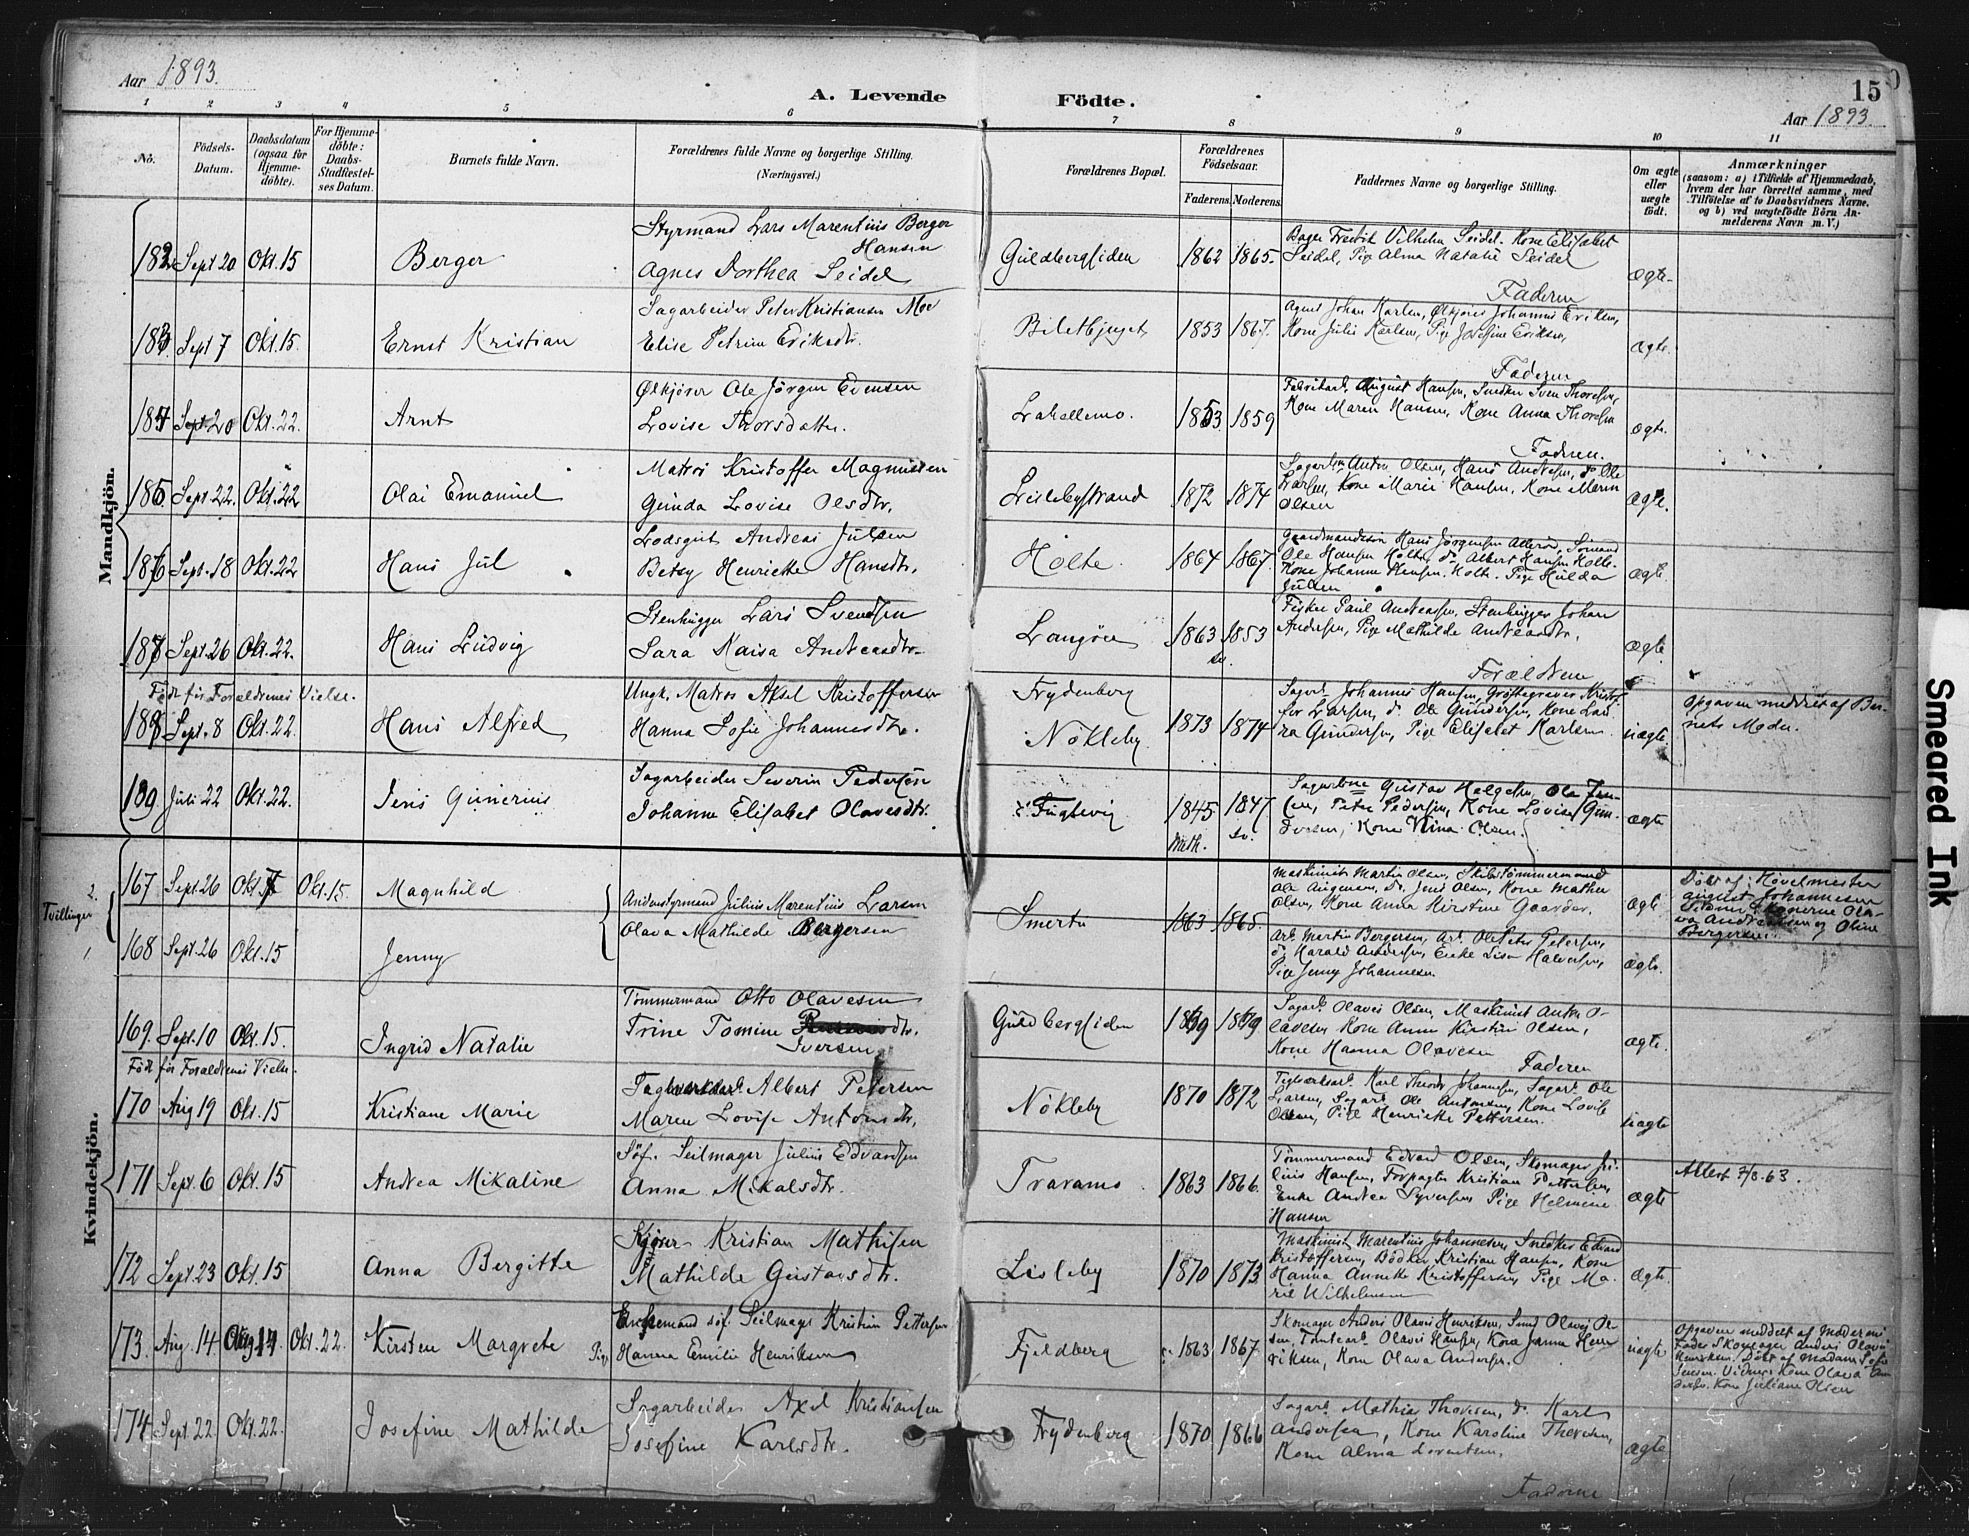 Aar 1893.
A. Levende Födte.
15
Aar 1893.
1 2 3 4 5 6 7 8 9 10 11
No.
Födsels-
Datum.
Daabsdatum
(ogsaa for
Hjemme-
döbte).
For Hjemme-
döbte:
Daabs-
Stadfæstel-
ses Datum.
Barnets fulde Navn.
Forældrenes fulde Navne og borgerlige Stilling.
(Næringsvei.)
Forældrenes Bopæl.
Forældrenes
Födselsaar.
Faderens. Moderens.
Faddernes Navne og borgerlige Stilling.
Om ægte
eller
uægte
födt.
Anmærkninger
(saasom: a) i Tilfælde af Hjemmedaab,
hvem der har forrettet samme, med
Tilföielse af to Daabsvidners Navne.
og b) ved uægtefödte Börn An-
melderens Navn m. V.)
Mandkjön.
182 Sept 20 Okt. 15
Berger
Styrmand Lars Marentius Berger
Hansen
Agnes Dorthea Seidel
Guldbergsiden
1862 1865.
Bager Fredrik Vilhelm Seidel. Kone Elisabet
Seidel, Pige Alma Natalie Seidel
Faderen
ægte.
183. Sept 7 Okt. 15.
Ernst Kristian
Sagarbeider Peter Kristiansen Moe
Elise Petrine Eriksdtr.
1853 1867.
Agent Johan Karlsen, Ølkjører Johannes Eriksen,
Kone Julie Karlsen, Pige Josefine Eriksen,
Faderen
ægte.
184 Sept. 20 Okt. 22.
Arnt
Ølkjører Ole Jørgen Evensen
Lovise Thorsdatter.
Lahellemo.
1853. 1859
Fabrikarb. August Hansen, Snedker Sven Thoresen,
Kone Maren Hansen, Kone Anna Thoresen
Faderen.
ægte.
185. Sept. 22. Okt. 22
Olai Emanuel
Matros Kristoffer Magnussen
Gunda Lovise Olsdtr.
Lislebystrand
1872 1874
Sagarb. Anton Olsen, Hans Andresen, do Ole
Larsen, Kone Marie Hansen, Kone Maren
Olsen
ægte.
186 Sept. 18 Okt. 22
Hans Jul
Lodsgut Andreas Julsen
Betsy Henriette Hansdtr.
Holte.
1864 1867.
Gaardmandssøn Hans Jørgensen Allerød, Sømand
Ole Hansen Holte, do Albert Hansen Holte.
Kone Johanne Hansen Holte. Pige Hulda
Julsen
ægte.
187 Sept. 26 Okt. 22.
Hans Ludvig
Stenhugger Lars Svendsen
Sara Kaisa Andreasdtr.
Langøen
1863 1853
sv.
Fisker Paul Andreassen, Stenhugger Johan
Andersen, Pige Mathilde Andreasdtr.
Forældrene
ægte.
Født før Forældrenes Vielse.
188 Sept. 8 Okt. 22.
Hans Alfred
Ungk. Matros Aksel Kristoffersen
Hanna Sofie Johannesdtr.
Frydenberg
Nökleby.
1873 1874
Sagarb. Johannes Hansen, Grøftegraver Kristof-
fer Larsen, do Ole Gundersen, Kone Lau-
ra Gundersen, Pige Elisabet Karlsen
uægte.
Opgaven meddelt af Bar-
nets Moder.
189. Juli 22 Okt. 22.
Jens Gunerius
Sagarbeider Severin Pedersen
Johanne Elisabet Olavesdtr.
Fuglevig.
1845. 1847.
Meth. Lv.
Sagarbne Gustav Helgesen, Ole Jen-
sen, Peter Pedersen, Kone Lovise Gun-
dersen, Kone Nina Olsen.
ægte
Kvindekjön.
Tvillinger
2.
1
167 Sept. 26 Okt. 7 Okt. 15.
Magnhild
Andenstyrmand Julius Marentius Larsen
Olava Mathilde Bergersen
Smertu
1863 1865.
Maskinist Martin Olsen, Skibstømmermand
Ole Jørgensen, Do. Jens Olsen, Kone Mathea
Olsen, Kone Anne Kirstine Gaarder.
ægte
Døbt af: Høvelmester
August Johannesen
Vidner: Konerne Ola-
va Andreassen og Oline
Bergersen.
168 Sept. 26 Okt. 15
Jenny
Arb. Martin Bergersen, Arb. Ole Peter Petersen,
do Harald Andersen, Enke Lisa Halvorsen,
Pige Jenny Johannesen
ægte.
169. Sept. 10 Okt. 15.
Ingrid Natalie
Tømmermand Otto Olavesen
Trine Tomine dtr.
Iversen
Guldbergsiden
1869 1869
Sagarb. Olaves Olsen, Maskinist Anton O-
lavesen Kone Anne Kirstine Olsen,
Kone Hanna Olavesen
Faderen
ægte.
Født før Forældrenes Vielse.
170 Aug 19 Okt. 15
Kristiane Marie
Teglverksarb. Albert Petersen
Maren Lovise Antonsdtr.
Nökleby
1870 1872
Teglverksarb. Karl Theodor Johannesen, Sagarb. Ole
Larsen, Sagarb. Ole Antonsen, Kone Lovise
Olsen, Pige Henriette Pettersen.
uægte
171 Sept. 6 Okt. 15
Andrea Mikaline
Søf. Seilmager Julius Edvardsen
Anna Mikalsdtr.
Traramo.
1863 1866.
Tømmermand Edvard Olsen, Skomager Ju-
lius Hansen, Forpagter Kristian Pettersen,
Enke Andrea Syversen Pige Helmine
Hansen
ægte
Attest 7/3. 63.
172 Sept. 23 Okt. 15
Anna Bergitte
Kjører Kristian Mathisen
Mathilde Gustavsdtr.
Lisleby
1870 1873
Maskinist Marentius Johannesen, Snedker Edvard
Kristoffersen, Bødker Kristian Hansen, Kone
Hanna Annette Kristoffersen, Pige Ma-
rie Wilhelmsen
ægte.
173. Aug. 14 Aug 14. Okt. 22
Kirsten Margrete
Enkemand søf. Seilmager Kristian Pettersen
Pige Hanna Emilie Henriksen
Fjeldberg
1863 1867.
Skomager Anders Olaves Henriksen, Smed Olaves Ol-
sen, Tomtearb. Olaves Hansen, Kone Hanna Hen-
riksen, Kone Olava Andersen.
uægte
Opgaven meddelt af Moderens
Fader Skomager Anders Olaves
Henriksen. Døbt af Madam Sofie
Jensen. Vidner: Kone Olava An-
dersen. Kone Juliane Olsen
174 Sept. 22 Okt. 22.
Josefine Mathilde
Sagarbeider Axel Kristiansen
Josefine Karlsdtr.
Frydenberg
1870 1866
Sagarb. Mathias Thoresen, do Karl
Andersen, Kone Karoline Thoresen,
Kone Alma Lorentsen.
Fadrene
ægte
Smeared Ink